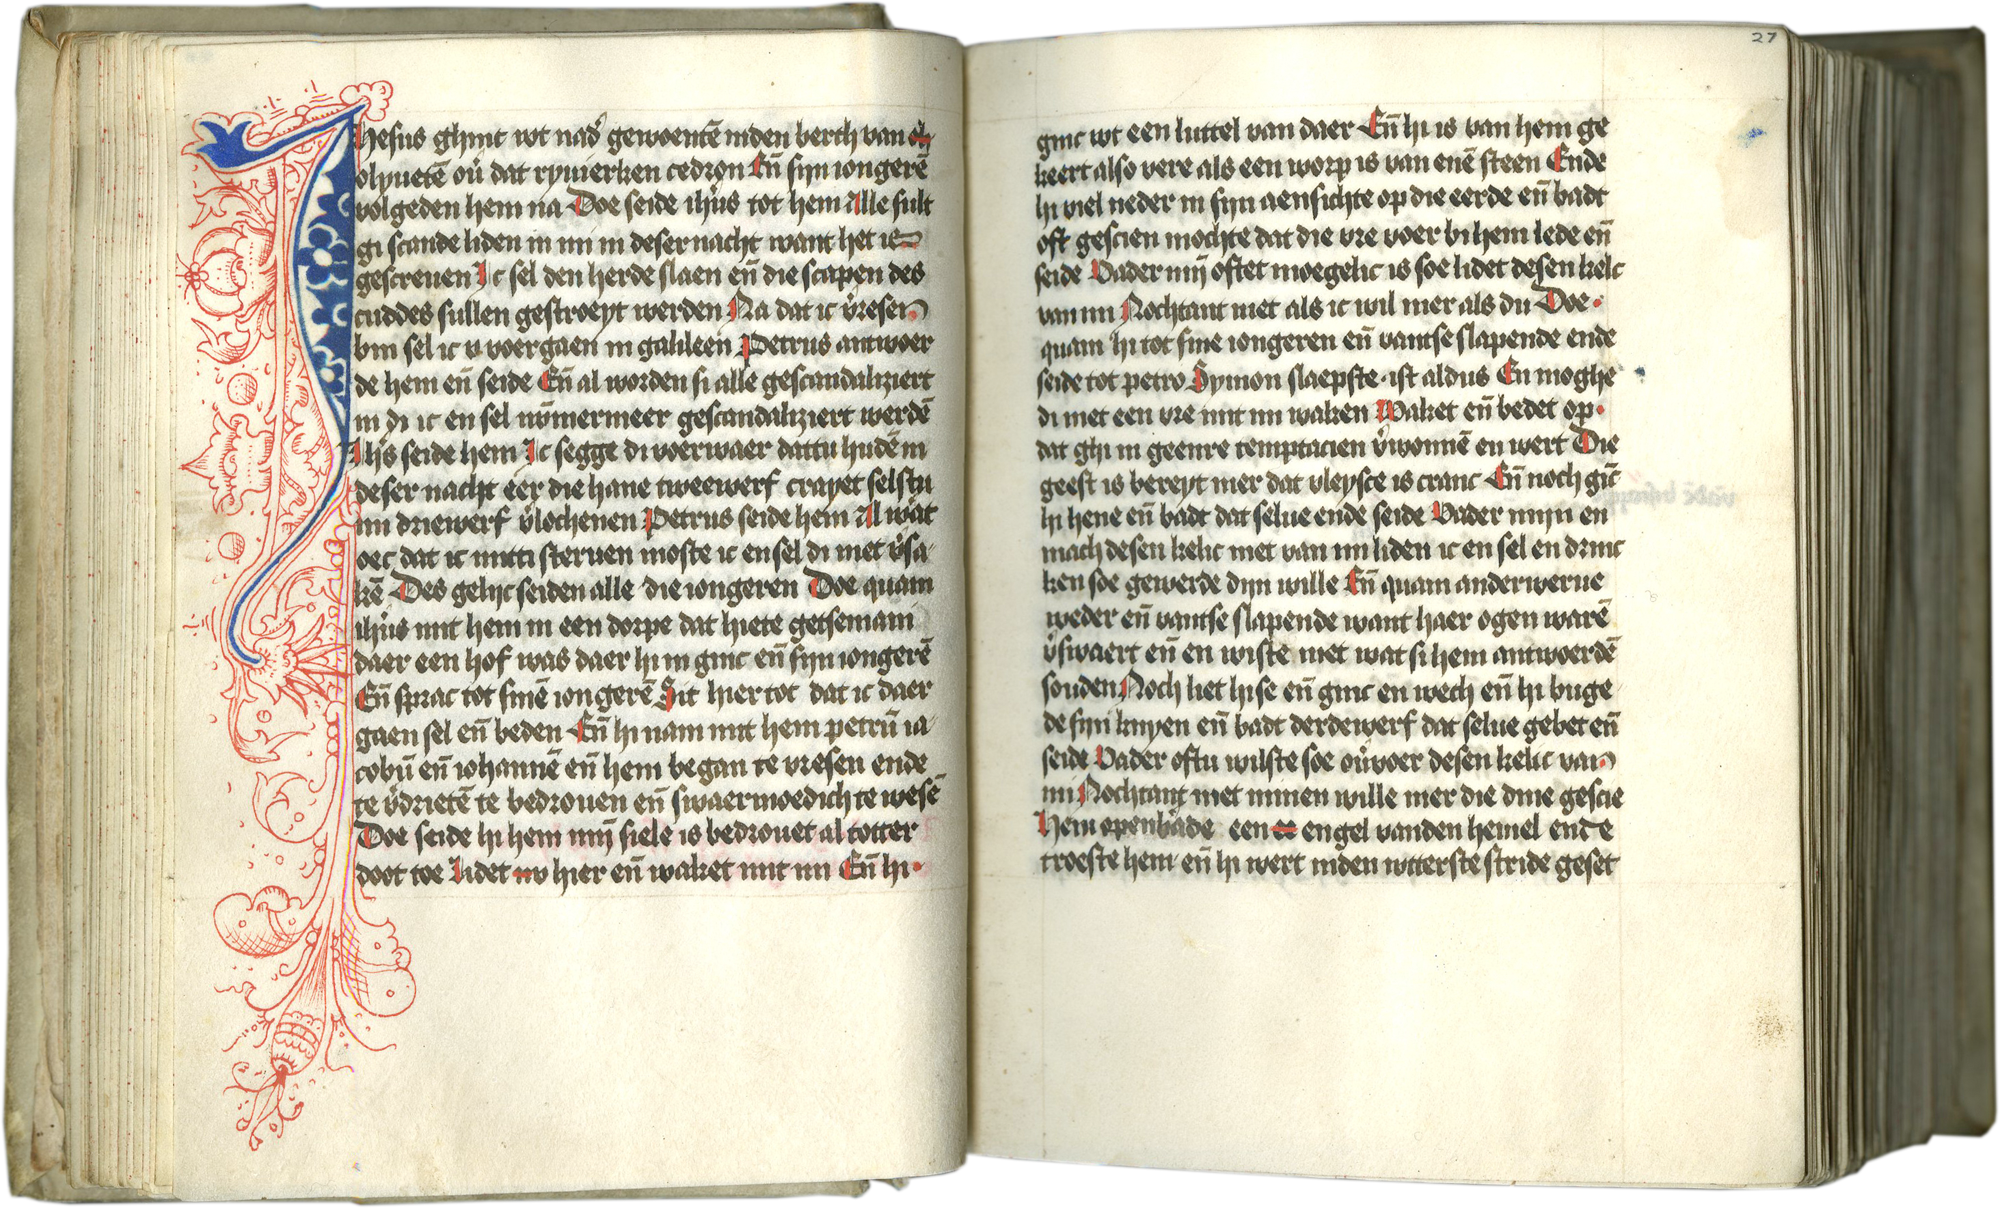 Ihesus ghinc wt nad' gewoentē inden berch van
olyuetē ou͛ dat ryuierken cedron Eñ sijn iongerē
volgeden hem na Doe seide ihūs tot hem Alle sult
gi scande liden in mi in deser nacht want het is
gescreuen Ic sel den herde slaen eñ die scapen des
cuddes sullen gestroeyt werden Na dat ic v͛resen
bin sel ic v voergaen in galileen Petrus antwoer
de hem eñ seide Eñ al worden si alle gescandaliziert
in di ic en sel nūmermeer gescandaliziert werdē
Ihs̄ seide hem Ic segge di voerwaer dattu hudē in
deser nacht eer die hane tweewerf crayet selstu
mi driewerf v͛lochenen Petrus seide hem Al wāt
oec dat ic mitti steruen moste ic en sel di niet v͛sa
kē Des gelijc seiden alle die iongeren Doe quam
ihūs mit hem in een dorpe dat hiete getsemani
daer een hof was daer hi in ginc eñ sijn iongerē
Eñ sprac tot sinē iongerē Sit hier tot dat ic daer
gaen sel eñ beden Eñ hi nam mit hem petrū ia
cobū eñ iohannē eñ hem began te vresen ende
te v͛drietē te bedrouen eñ swaermoedich te wesē
Doe seide hi hem mijn siele is bedrouet al totter
doot toe Lidet hier eñ waket mit mi Eñ hi
ginc wt een luttel van daer Eñ hi is van hem ge
keert also vere als een worp is van enē steen Ende
hi viel neder in sijn aensichte op die eerde eñ badt
oft gescien mochte dat die vre voer bi hem lede eñ
seide Vader mijn oftet moegelic is soe lidet desen kelc
van mi Nochtant niet als ic wil mer als du Doe
quam hi tot sine iongeren eñ vantse slapende ende
seide tot petro Symon slaepste ist aldus En moghe
di niet een vre mit mi waken Waket eñ bedet op
dat ghi in geenre temptacien v͛wonnē en wert Die
geest is bereyt mer dat vleysce is cranc Eñ noch gīc
hi hene eñ badt dat selue ende seide Vader mijn en
mach desen kelic niet van mi liden ic en sel en drinc
ken soe gewerde dijn wille Eñ quam anderwerue
weder eñ vantse slapende want haer ogen warē
v͛swaert eñ en wiste niet wat si hem antwoerdē
souden Noch liet hise eñ ginc en wech eñ hi buge
de sijn knyen eñ badt derdewerf dat selue gebet eñ
seide Vader oftu wilste soe ou͛voer desen kelic van
mi Nochtant niet minen wille mer die dine gescie
Hem openbade een engel vanden hemel ende
troeste hem eñ hi wert inden wtterste stride geset
27